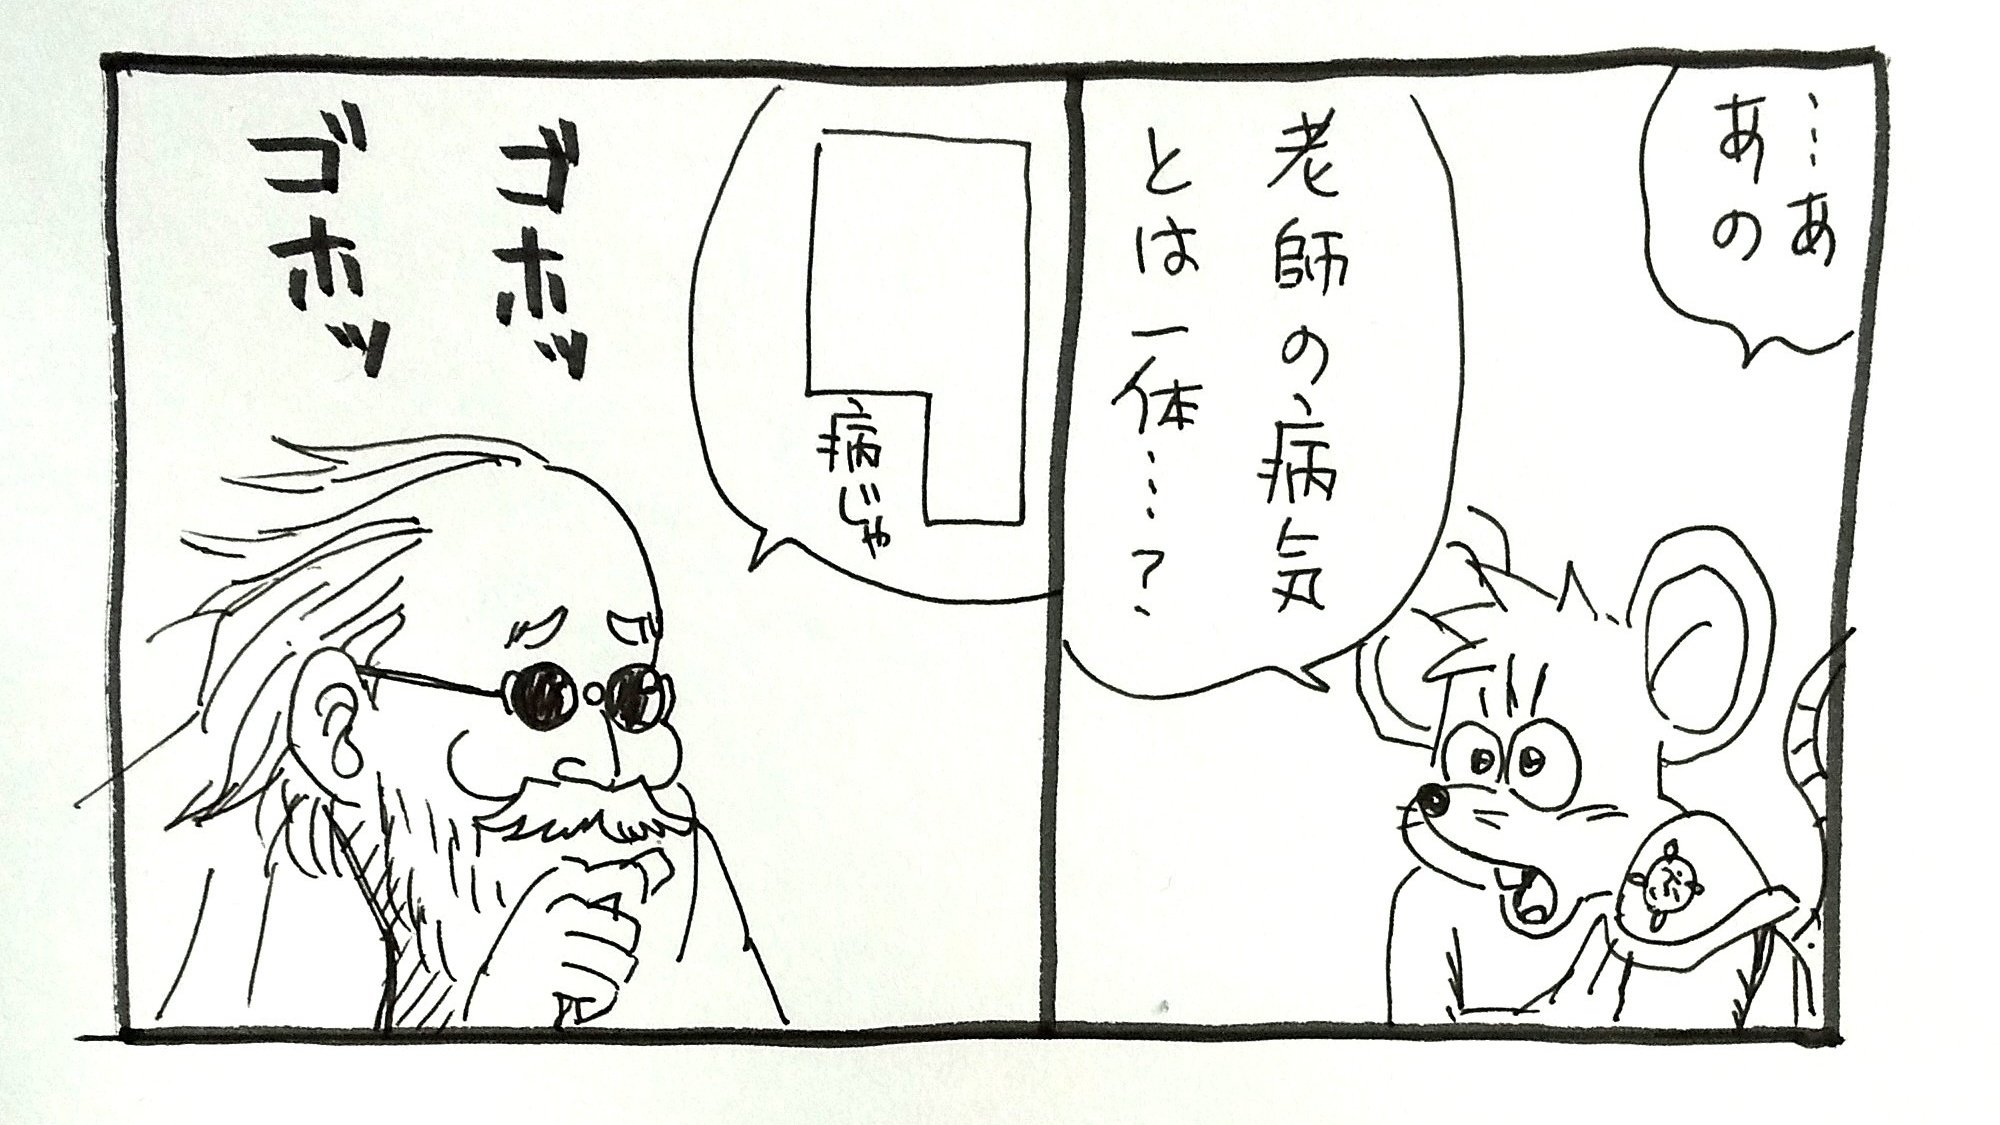 …あ
あの
老師の病気
とは一体…？
病じゃ
ゴホッ
ゴホッ